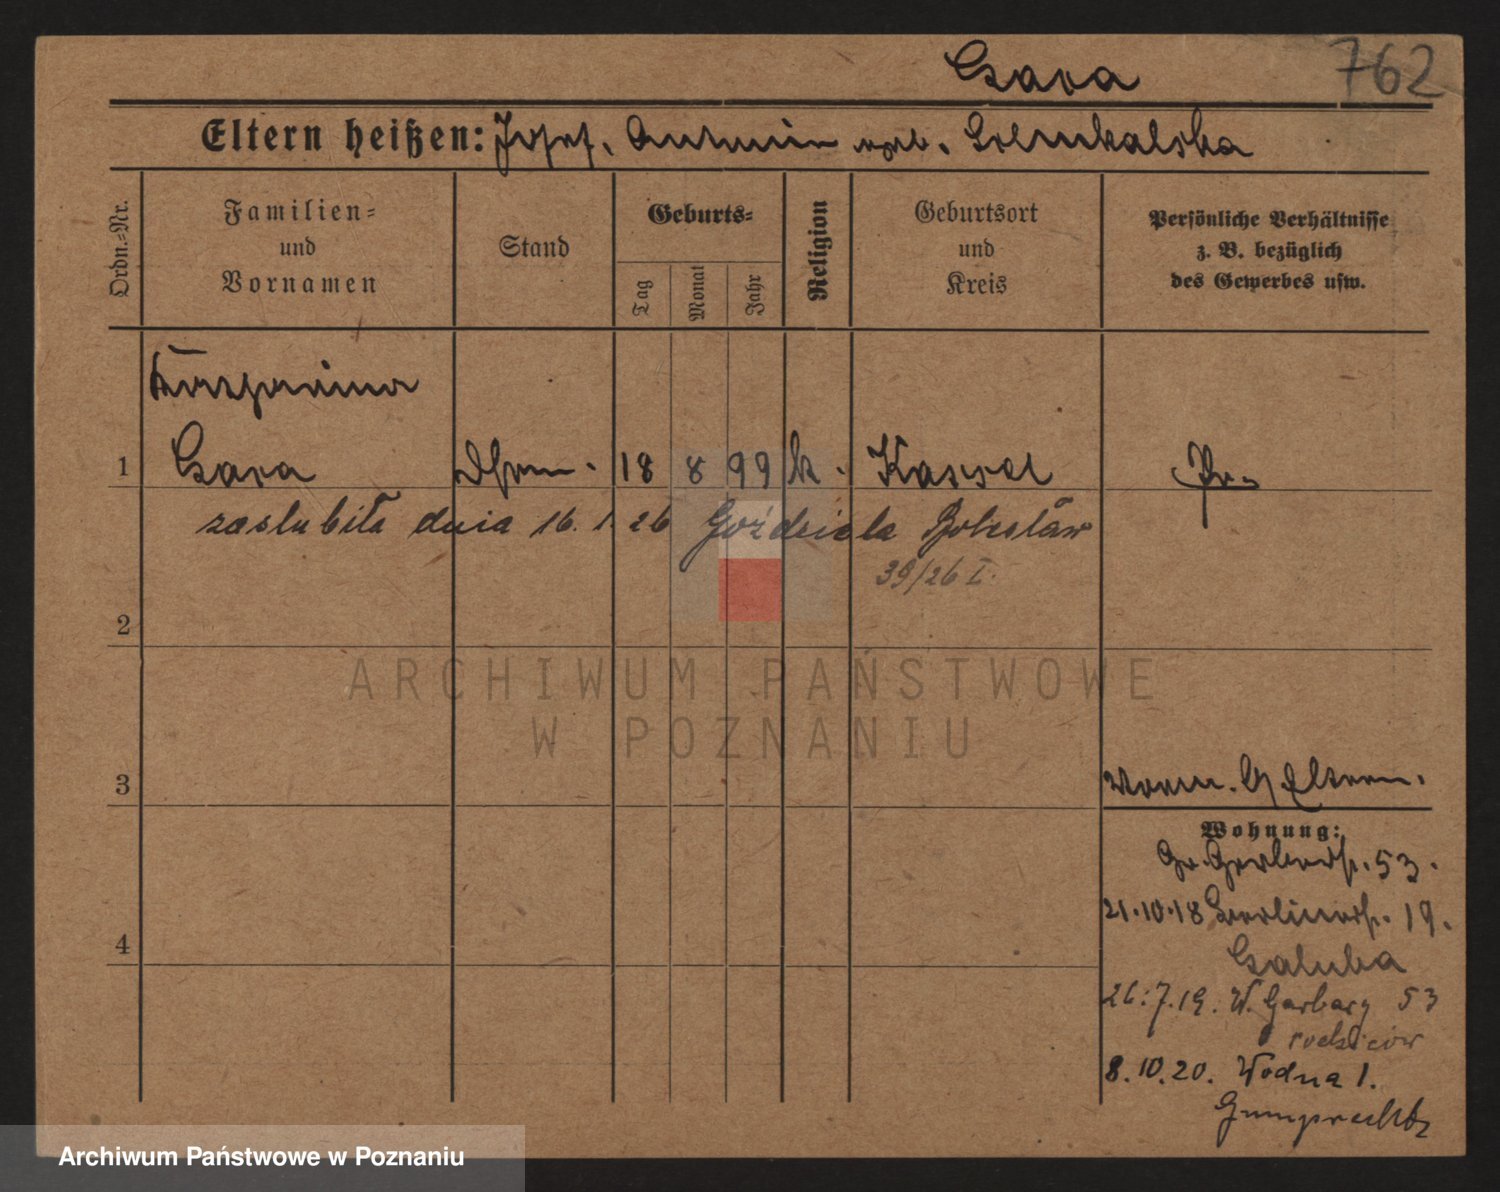 Czara
762
Eltern heißen: Josef, Antonie geb. Golembalska
Ordn.-Nr.
Familien-
und
Vornamen
Stand
Geburts-
Tag
Monat
Jahr
Religion
Geburtsort
und
Kreis
Persönliche Verhältnisse
z. B. bezüglich
des Gewerbes usw.
1
Czara
18 8 99 k. Kassel Pr.
zaślubiła dnia 16. 1. 26 Goździela Bolesław
39/26 I.
2
ARCHIWUM PAŃSTWOWE
W POZNANIU
3
Eltern.
Wohnung:
Gr. Gerberstr. 53.
4
21.10.18 Berlinerstr. 19.
26.7.19. W. Garbary 53
rodziców
8.10.20. Wodna 1.
Gumprecht
Archiwum Państwowe w Poznaniu